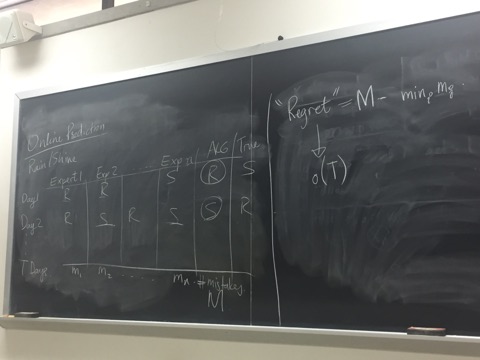 Online Prediction
Rain/Shine
Expert 1 Exp 2 ... Exp n ALG True
Day 1 R R S R S
Day 2 R S R S S R
T Days m₁ m₂ .... mₙ # mistakes
M
"Regret" = M - min
o(T)